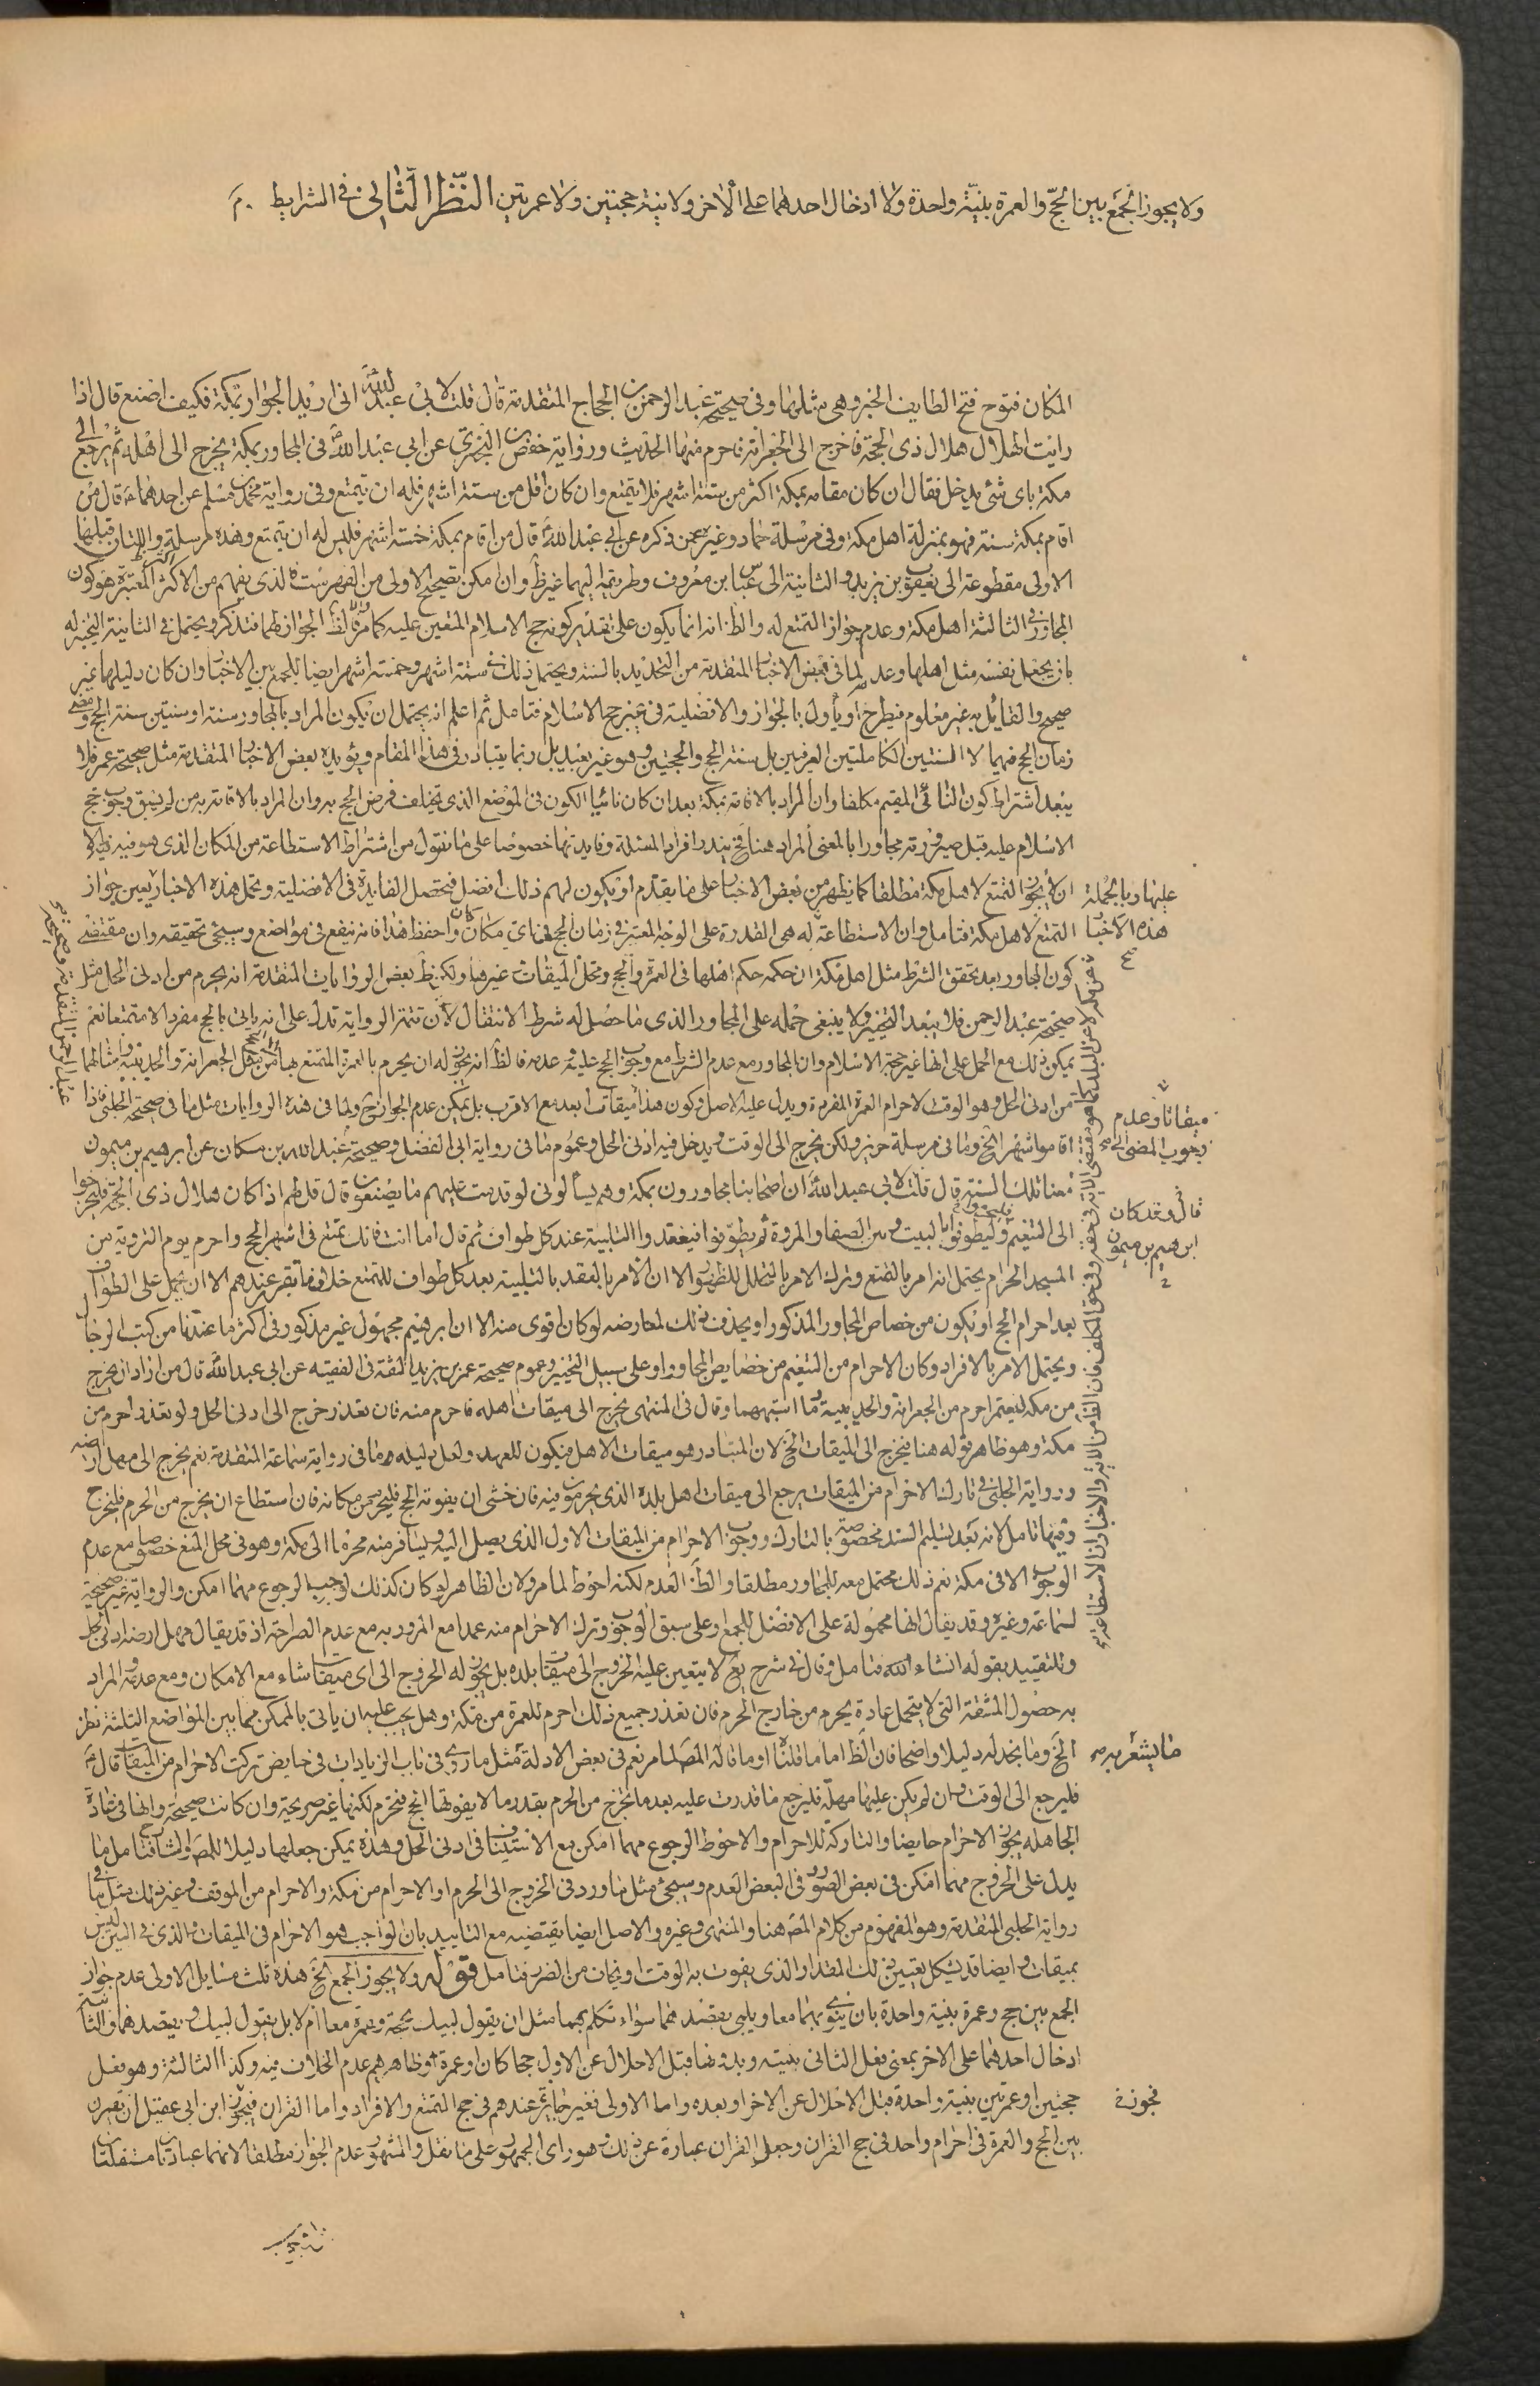 ولا يجوز الجمع بين الحجّ والعمرة بنيّة واحدة ولا ادخال احدهما على الاخر ولا بنية حجتين ولا عمرتين النّظر الثّاني في الشرايط
المكان فتوح فتح الطايف الخبر وهى مثلها وفى صحيحة عبد الرحمن بن الحجاج المتقدمة قال قلت لابى عبد اللّه انى اريد الجوار بمكة فكيف اصنع قال اذا
رايت الهلال هلال ذى الحجّة فاخرج الى الجعرانة فاحرم منها الحديث ورواية حفص بن البخترى عن ابى عبد اللّه فى المجاور بمكة يخرج الى اهله ثم يرجع الى
مكة باى شئ يدخل فقال ان كان مقامه بمكة اكثر من ستة اشهر فلا يتمتع وان كان اقل من ستة اشهر فله ان يتمتع وفى رواية محمد بن مسلم عن احدهما قال من
اقام بمكة سنة فهو بمنزلة اهل مكة وفى مرسلة حماد وغيره عمن ذكره عن ابى عبد اللّه قال من اقام بمكة خمسة اشهر فليس له ان يتمتع وهذه مرسلة واللتان قبلها
الاولى مقطوعة الى يعقوب بن يزيد والثانية الى عباس بن معروف وطريقه اليهما غير ظ وان امكن تصحيح الاولى من الفهرست الذى يفهم من الاكثر المعتبرة هو كون
المجاور فى الثالثة اهل مكة وعدم جواز التمتع له والظ انه انما يكون على تقدير كونه حج الاسلام المتعين عليه كما مر فالظ الجواز لهما فتذكر ويحتمل فى الثانية التخيير له
بان يجعل نفسه مثل اهلها وعدمه لما فى بعض الاخبار المتقدمة من التحديد بالسنة ويحتمل ذلك فى ستة اشهر وخمسة اشهر ايضا للجمع بين الاخبار وان كان دليلها غير
صحيح والقايل به غير معلوم فيطرح او يأول بالجواز والافضلية فى غير حج الاسلام فتامل ثم اعلم انه يحتمل ان يكون المراد بالمجاور سنة او سنتين سنة الحج ومضى
زمان الحج فيهما لا السنتين الكاملتين العرفيين بل سنة الحج والحجتين وهو غير بعيد بل ربما يتبادر فى هذا المقام ويؤيده بعض الاخبار المتقدمة مثل صحيحة عمر فلا
يبعد اشتراط كون النائى المقيم مكلفا وان المراد بالاقامة بمكة بعد ان كان نائيا الكون فى الموضع الذى تخلف فرض الحج به وان المراد بالاقامة به من لم يسبق وجوب حج
الاسلام عليه قبل صيرورته مجاورا بالمعنى المراد هنا فح يندر افراد المسئلة وفايدتها خصوصا على ما نقول من اشتراط الاستطاعة من المكان الذى هو فيه
عليها وبالجملة ان لا يجوز التمتع لاهل مكة مطلقا كما يظهر من بعض الاخبار على ما يقدم او يكون لهم ذلك افضل فتحصل الفايدة فى الافضلية وتحمل هذه الاخبار يعين جواز
هذه الاخبار التمتع لاهل مكة فتامل وان الاستطاعة له هى القدرة على الوجه المعتبر فى زمان الحج فى اى مكان كان واحفظ هذا فانه ينفع فى مواضع وسيجئ تحقيقه وان مقتضى
كون المجاور بعد تحقق الشرط مثل اهل مكة ان حكمه حكم اهلها فى العمرة والحج ومحل الميقات غيرها ولكن ظ بعض الروايات المتقدمة انه يحرم من ادنى الحل مثل
صحيحة عبد الرحمن فلا يبعد التخيير ولا ينبغى حمله على المجاور الذى ما حصل له شرط الانتقال لان تتمة الرواية تدل على انه ياتى بالحج مفردا لا متمتعا نعم
يمكن ذلك مع الحمل على انها غير حجة الاسلام وان المجاور مع عدم الشرط مع وجوب الحج عليه وعدمه فالظ انه يجوز له ان يحرم بالعمرة المتمتع بها من مثل الجعرانة والحديبية وامثالهما
من ادنى الحل وهو الوقت لاحرام العمرة المفردة ويدل عليه الاصل وكون هذا ميقاتا بعد مع الاقرب بل يمكن عدم الجواز ح ولما فى هذه الروايات مثل ما فى صحيحة الحلبى فاذا
ميقاتا وعدم وجوب المضى الخ اقاموا شهرا الخ وما فى مرسلة حريز ولكن يخرج الى الوقت ويدخل فيه ادنى الحل وعموم ما فى رواية ابى الفضل وصحيحة عبد اللّه بن مسكان عن ابرهيم بن ميمون
قال وقد كان ابرهيم بن ميمون معنا تلك السنة قال قلت لابى عبد اللّه ان اصحابنا مجاورون بمكة وهم يسألونى لو قدمت عليهم ما يصنعون قال قل لهم اذا كان هلال ذى الحجة فليخرجوا
الى التنعيم وليطوفوا بالبيت وبين الصفا والمروة ثم يطوفوا فيعقدوا التلبية عند كل طواف ثم قال اما انت فانك تمتع فى اشهر الحج واحرم يوم التروية من
المسجد الحرام يحتمل انه امر بالتمتع وترك الامر بالتحلل للظهور الا ان الامر بالعقد بالتلبية بعد كل طواف للتمتع خلاف ما تقرر عندهم الا ان يحمل على الطواف
بعد احرام الحج او يكون من خصايص المجاور المذكور او يحذف ذلك لمعارضه لو كان اقوى منه الا ان ابرهيم مجهول غير مذكور فى اكثر ما عندنا من كتب الرجال
ويحتمل الامر بالافراد وكان الاحرام من التنعيم من خصايص المجاور او على سبيل التخيير وعموم صحيحة عمر بن يزيد الثقة فى الفقيه عن ابى عبد اللّه قال من اراد ان يخرج
من مكة ليعتمر احرم من الجعرانة والحديبية وما اشبههما وقال فى المنتهى يخرج الى ميقات اهله فاحرم منه فان تعذر خرج الى ادنى الحل ولو تعذر احرم من
مكة وهو ظاهر قوله هنا فيخرج الى الميقات الخ لان المتبادر هو ميقات الاهل فيكون للعهد ولعل دليله ما فى رواية سماعة المتقدمة نعم يخرج الى مهل ارضه
ورواية الحلبى فى تارك الاحرام من الميقات يرجع الى ميقات اهل بلده الذى يحرمون فيه فان خشى ان يفوته الحج فليحرم من مكانه فان استطاع ان يخرج من الحرم فليخرج
وفيهما تامل لانه بعد تسليم السند مخصوصة بالتارك ووجوب الاحرام من الميقات الاول الذى يصل اليه ويسافر منه محرما الى مكة وهو فى محل المنع خصوصا مع عدم
الوجوب الا فى مكة نعم ذلك محتمل معه للمجاور مطلقا والظ العدم لكنه احوط لما مر ولان الظاهر لو كان كذلك لوجب الرجوع مهما امكن والرواية غير صحيحة
لسماعة وغيره وقد يقال انها محمولة على الافضل للجمع وعلى سبق الوجوب وترك الاحرام منه عمدا مع المرور به مع عدم الصراحة اذ قد يقال مهل ارضه ادنى الحل
وللتقييد بقوله انشاء اللّه فتامل وقال فى شرح يع لا يتعين عليه الخروج الى ميقات بلده بل يجوز له الخروج الى اى ميقات شاء مع الامكان ومع عدمه المراد
به حصول المشقة التى لا يتحمل عادة يحرم من خارج الحرم فان تعذر جميع ذلك احرم للعمرة من مكة وهل يجب عليه ان ياتى بالممكن مما بين المواضع الثلثة نظر
ما يشعر به الخ وما نجد له دليلا واضحا فان الظ اما ما قلناه او ما قاله المص لما مر نعم فى بعض الادلة مثل ما روى فى باب الزيادات فى حايض تركت الاحرام من الميقات قال
فليرجع الى الوقت وان لم يكن عليها مهلة فلترجع ما قدرت عليه بعد ما تخرج من الحرم بقدر ما لا يفوتها الحج فتحرم لكنها غير صريحة وان كانت صحيحة وانها فى مادة
الجاهلة بجواز الاحرام حايضا والتاركة للاحرام والاحوط الرجوع مهما امكن مع الاستيناف فى ادنى الحل وهذه يمكن جعلها دليلا للمص والشافتامل ما
يدل على الخروج مهما امكن فى بعض الصور فى البعض العدم وسيجئ مثل ما ورد فى الخروج الى الحرم او الاحرام من مكة والاحرام من الموقف وغير ذلك مثل ما فى
رواية الحلبى المتقدمة وهو المفهوم من كلام المص هنا والمنتهى وغيره والاصل ايضا يقتضيه مع التاييد بان الواجب هو الاحرام فى الميقات والذى فى البين ليس
بميقات وايضا قد يشكل تعيين ذلك المقدار الذى يفوت به الوقت او يخاف من الضرر فتامل قوله ولا يجوز الجمع الخ هذه ثلث مسايل الاولى عدم جواز
الجمع بين حج وعمرة بنية واحدة بان ينوى بهما معا ويلبى بقصدهما سواء تكلم بهما مثل ان يقول لبيك بحجة وعمرة معا ام لا بل يقول لبيك ويقصدهما والثانية
ادخال احدهما على الاخر بمعنى فعل الثانى بنيته وبدونها قبل الاحلال عن الاول حجا كان او عمرة وظاهرهم عدم الخلاف فيه وكذا الثالثة وهو فعل
حجتين او عمرتين بنية واحدة قبل الاحلال عن الاخر او بعده واما الاولى فغير جايز عندهم فى حج التمتع والافراد واما القران فيجوز ابن ابى عقيل ان يقرن
بين الحج والعمرة فى احرام واحد فى حج القران وجعل القران عبارة عن ذلك وهو راى الجمهور على ما نقل والمشهور عدم الجواز مطلقا لانهما عبادتان مستقلتان